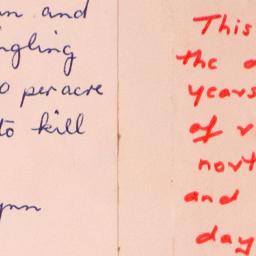 and
ngling
0 per acre
to kill
ynn
This
the
years
of
nort
and
day